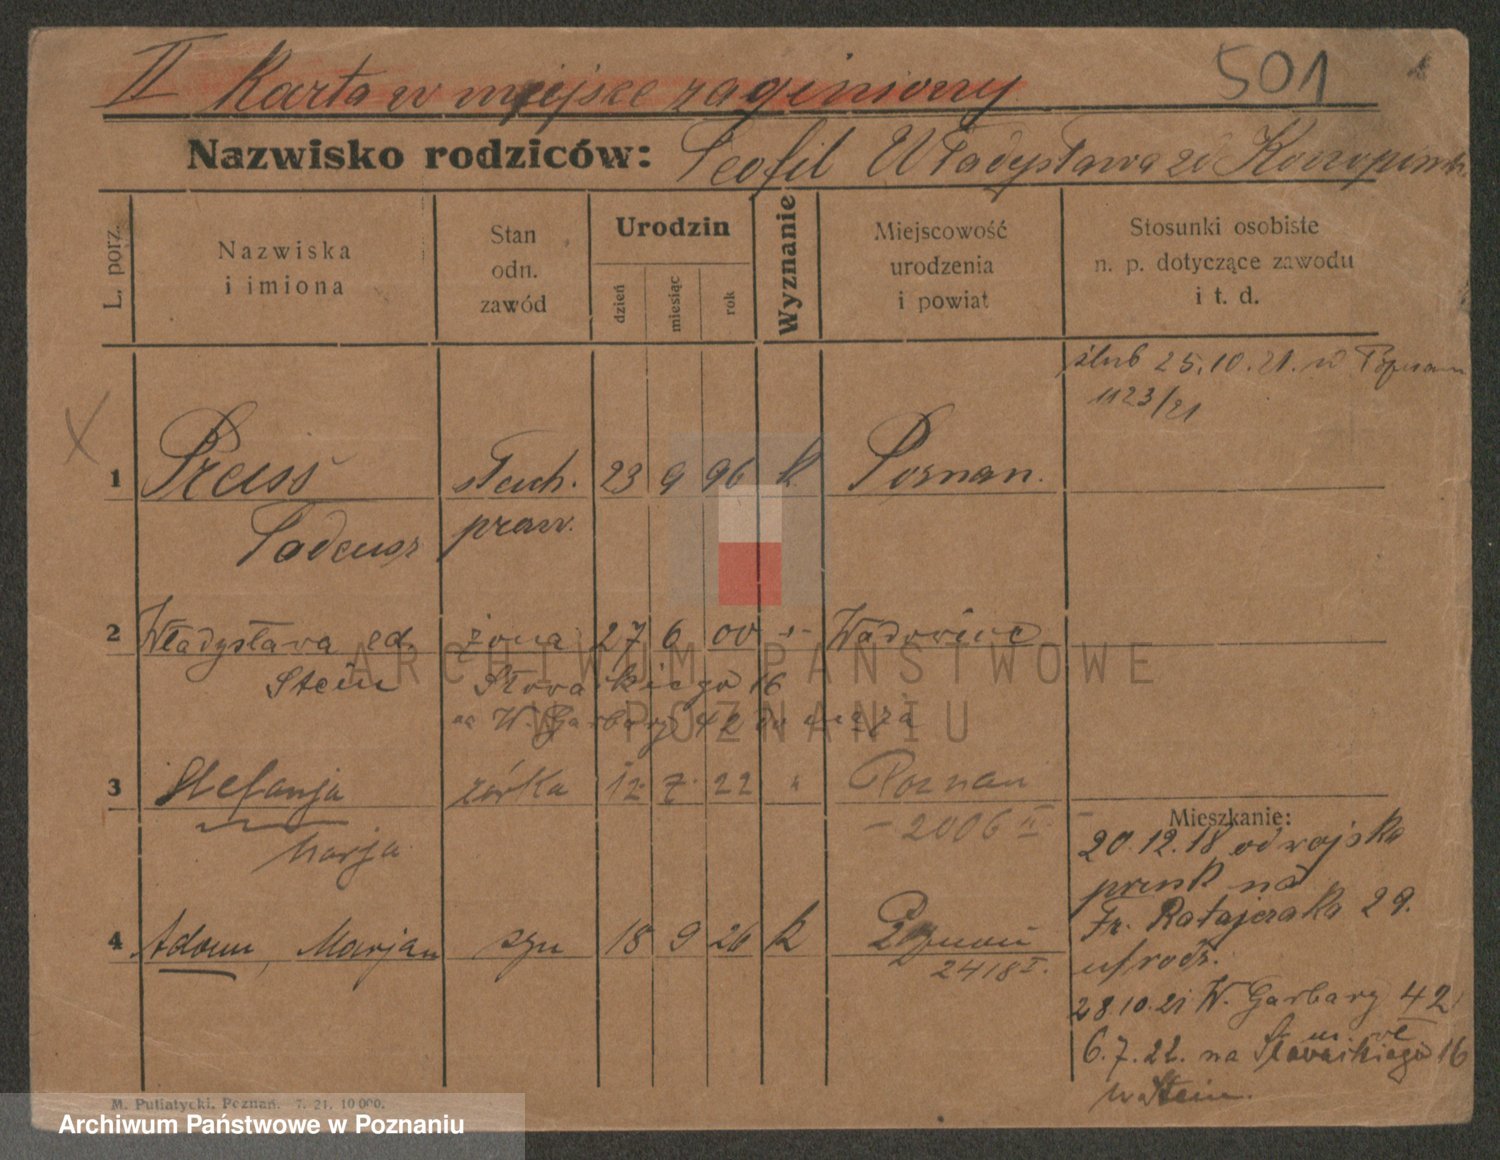 II Karta w miejsce zaginiony
501
Nazwisko rodziców: Teofil Władysława zd
L. porz.
Nazwiska
i imiona
Stan
odn.
zawód
Urodzin
dzień
miesiąc
rok
Wyznanie
Miejscowość
urodzenia
i powiat
Stosunki osobiste
n. p. dotyczące zawodu
i t. d.
ślub 25.10.21. w
1123/21
X
1 Preuss słuch. 23 9 96 k Poznań.
Tadeusz praw.
2 Władysława zd. żona 27 6 00 -"- Wadowice
Stein Słowackiego 16
na W. Garbary 42 do męża
3 Stefanja córka 12. 7. 22 " Poznań
Marja - 2006 II -
4 Adam, Marjan syn 18 9 26 k Poznań
2418 I.
Mieszkanie:
20.12.18 od wojska
na
Fr. Ratajczaka 29.
u rodz.
28.10.21 W. Garbary 42
6.7.22. na Słowackiego 16
u Stein.
M. Putiatycki, Poznań. 7. 21. 10 000.
ARCHIWUM PAŃSTWOWE
W POZNANIU
Archiwum Państwowe w Poznaniu